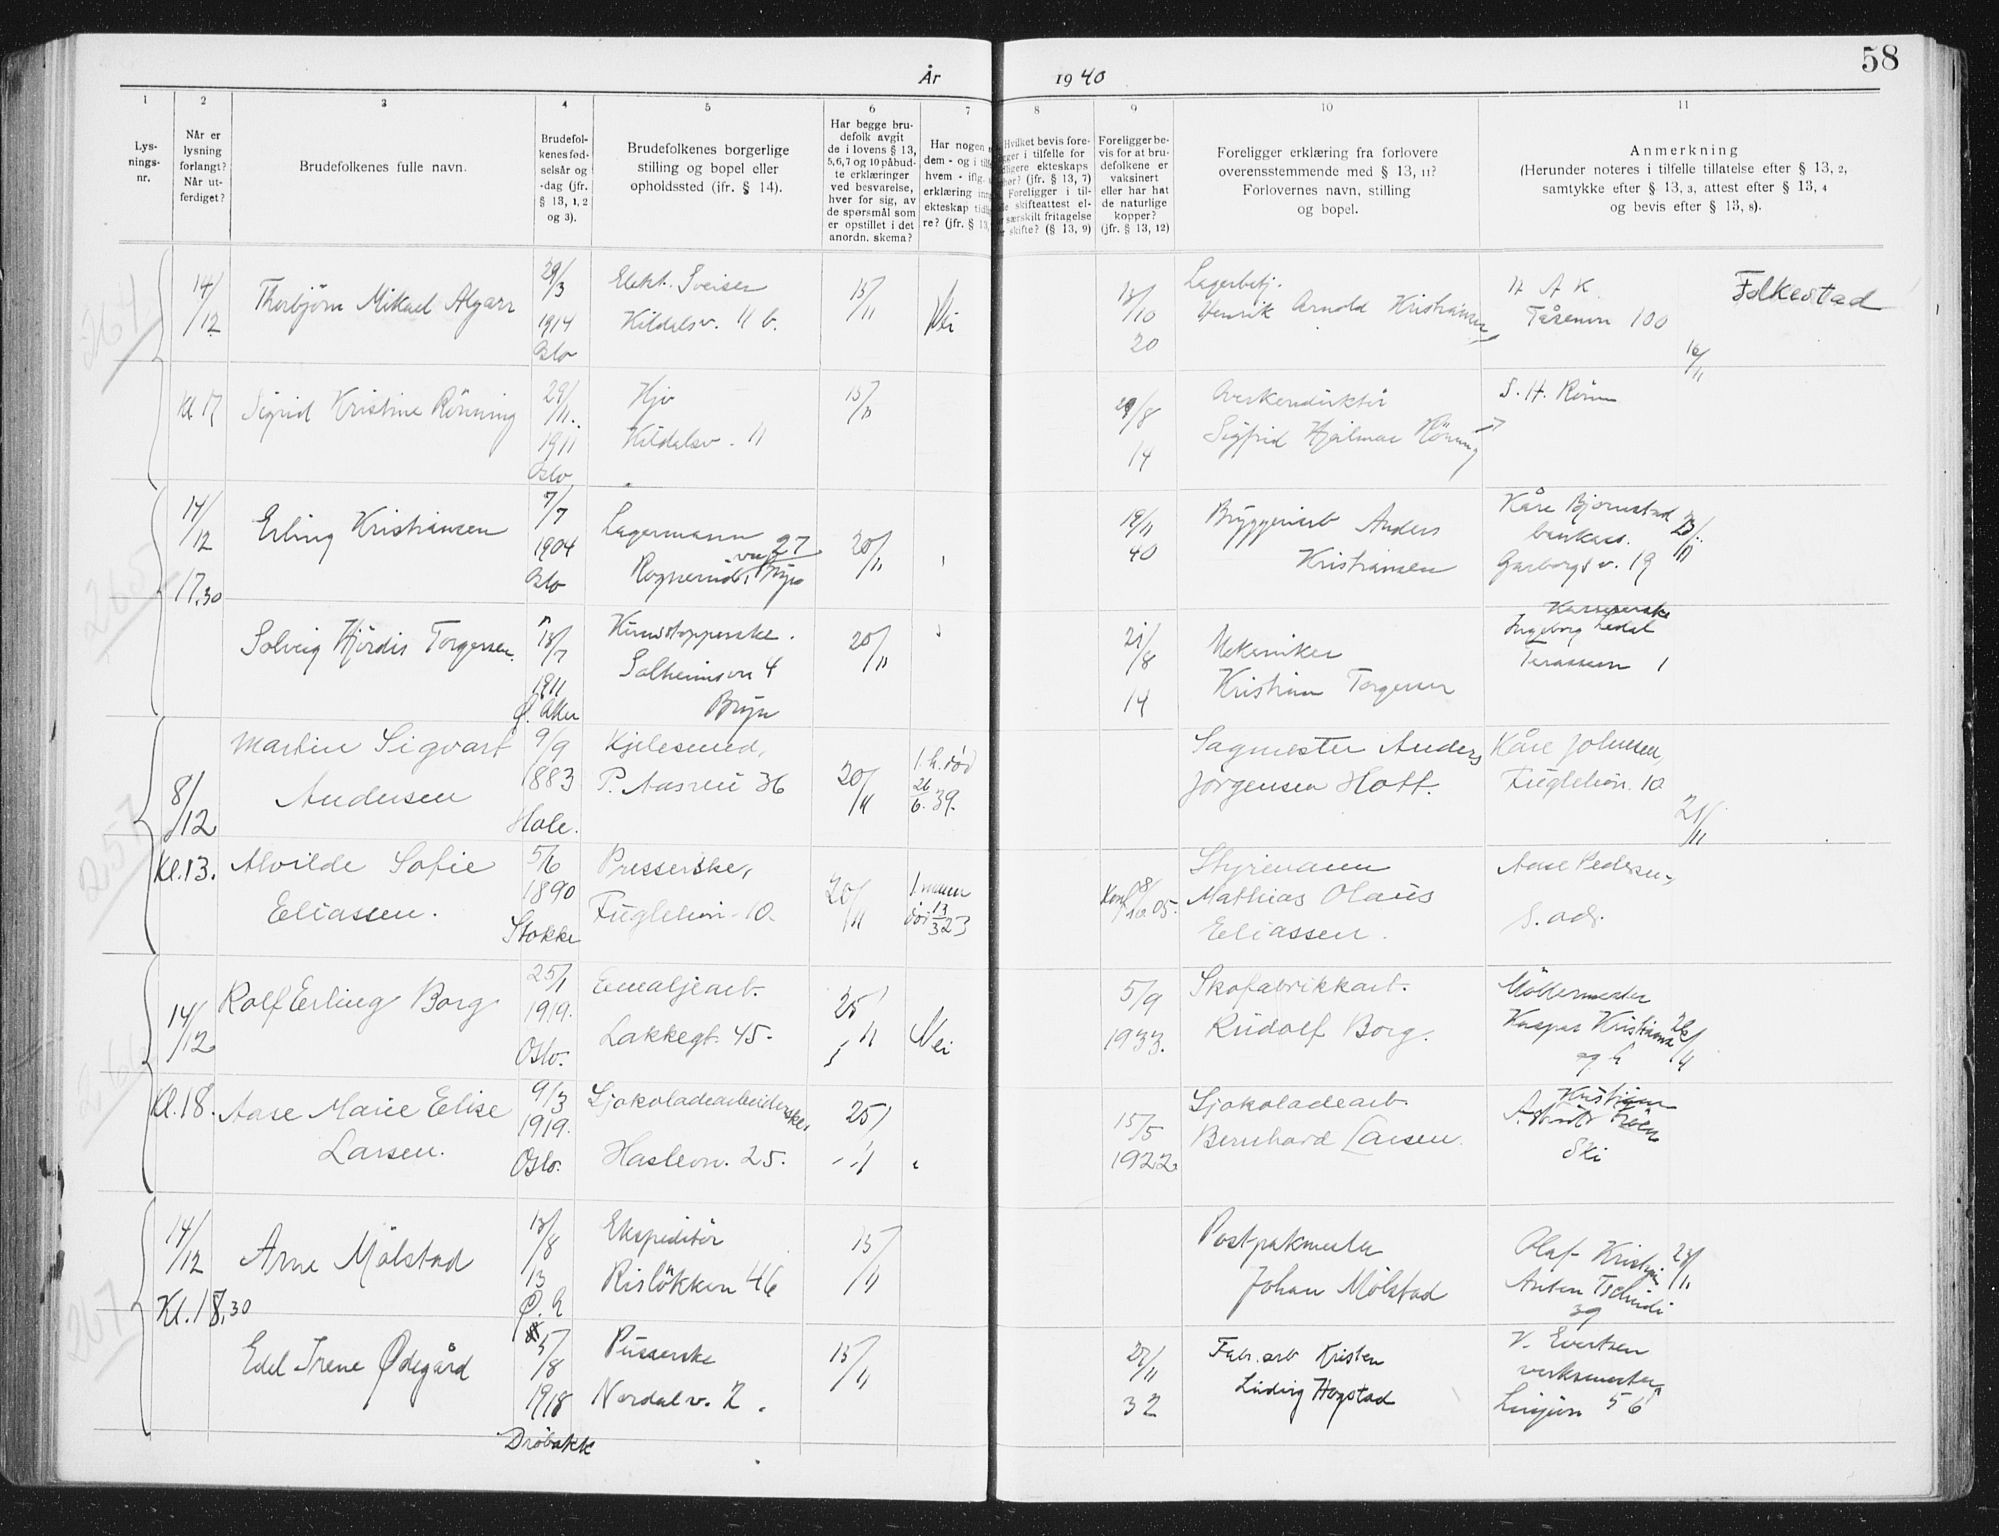 58
År 1940
1 2 3 4 5 6 7 8 9 10 11
Lys-
nings-
nr.
Når er
lysning
forlangt?
Når ut-
ferdiget?
Brudefolkenes fulle navn.
Brudefol-
kenes fød-
selsår og
-dag (jfr.
§ 13, 1, 2
og 3).
Brudefolkenes borgerlige
stilling og bopel eller
opholdssted (jfr. § 14).
Har begge bru-
defolk avgitt
de i lovens § 13,
5, 6, 7 og 10 påbud-
te erklæringer
ved besvarelse,
hver for sig, av
de spørsmål som
er opstillet i det
anordn. skema?
Har nogen
dem - og i
hvem - iflg.
erklæring
ekteskap
re? (jfr. § 13,
Hvilket bevis fore-
i tilfelle for
ekteskaps
(jfr. § 13, 7)
Foreligger i til-
skifteattest el-
særskilt fritagelse
skifte? (§ 13, 9)
Foreligger be-
vis for at bru-
defolkene er
vaksinert
eller har hat
de naturlige
kopper?
(jfr. § 13, 12)
Foreligger erklæring fra forlovere
overensstemmende med § 13, 11?
Forlovernes navn, stilling
og bopel.
Anmerkning
(Herunder noteres i tilfelle tillatelse efter § 13, 2,
samtykke efter § 13, 3, attest efter § 13, 4
og bevis efter § 13, 8).
264
14/12
Thorbjørn Mikael
29/3
1914
Oslo
Elekt. Sveiser
Kildalsv. 11 b.
15/11
Nei
13/10
20
Lagerbetj.
Henrik Arnold Kristiansen
Tåsenvn 100
Folkestad
16/11
Kl 17
Sigrid Kristine Rönning
29/11.
1911
Oslo
Hjv
Kildalsv. 11
15/11
29/8
14
Sigfrid Hjalmar Rönning
265
14/12
17.30
Erling Kristiansen
7/7
1904
Oslo
Lagermann
vn 27
Bryn
20/11
19/11
40
Bryggeriarb Anders
Kristiansen
Kåre Bjørnstad
bankass.
Garborgs v. 19
23/11
Solveig Hjördis Torgersen.
13/7
1911
Ø. Aker
Kunststopperske.
Solheimsvn 4
Bryn
20/11
21/8
14
Mekaniker
Kristian Torgersen
Kassererske
Ingeborg Ledal
Terassevn 1
257
8/12
Kl. 13.
Martin Sigvart
Andersen
9/9
1883
Hole.
Kjelesmed,
P. Aasvei 36
20/11
1. h. död
26/6. 39.
Sagmester Anders
Jörgensen Hott.
Kåre Johnsen,
Fuglelivn. 10
21/11
Alvilde Sofie
Eliassen.
5/6
1890
Stokke
Presserske,
Fuglelivn. 10.
20/11
1. mann
död 13/3 23
Konf. 8/10. 05.
Styrmann
Mathias Olaus
Eliassen.
Aase Pedersen,
s. adr.
266
14/12
Kl. 18.
Rolf Erling Borg
25/1
1919.
Oslo.
Emaljearb.
Lakkegt. 45.
25/11
Nei
5/9
1933.
Skofabrikkarb.
Rudolf Borg.
Möllermester
Kaspar Kristiansen
og
26/11
Aase Marie Elise
Larsen.
9/3
1919.
Oslo.
Sjokoladearbeiderske,
Haslevn. 25.
25/11
15/5
1922.
Sjokoladearb.
Bernhard Larsen.
Ski
267
14/12
Kl. 18,30
Arne Mölstad
13/8
13
Ø. A
Ekspeditör
Rislökken 46
15/11
Postpakmester
Johan Mölstad
Olaf Kristian
Anton Tschudi
og
23/11
Edel Irene Ødegård
5/8
1918
Dröbakk
Pusserske
Nordalv. 2.
15/11
27/11
32
Fabr.arb Kristen
Ludvig Hogstad
V. Evertsen
verksmester
56